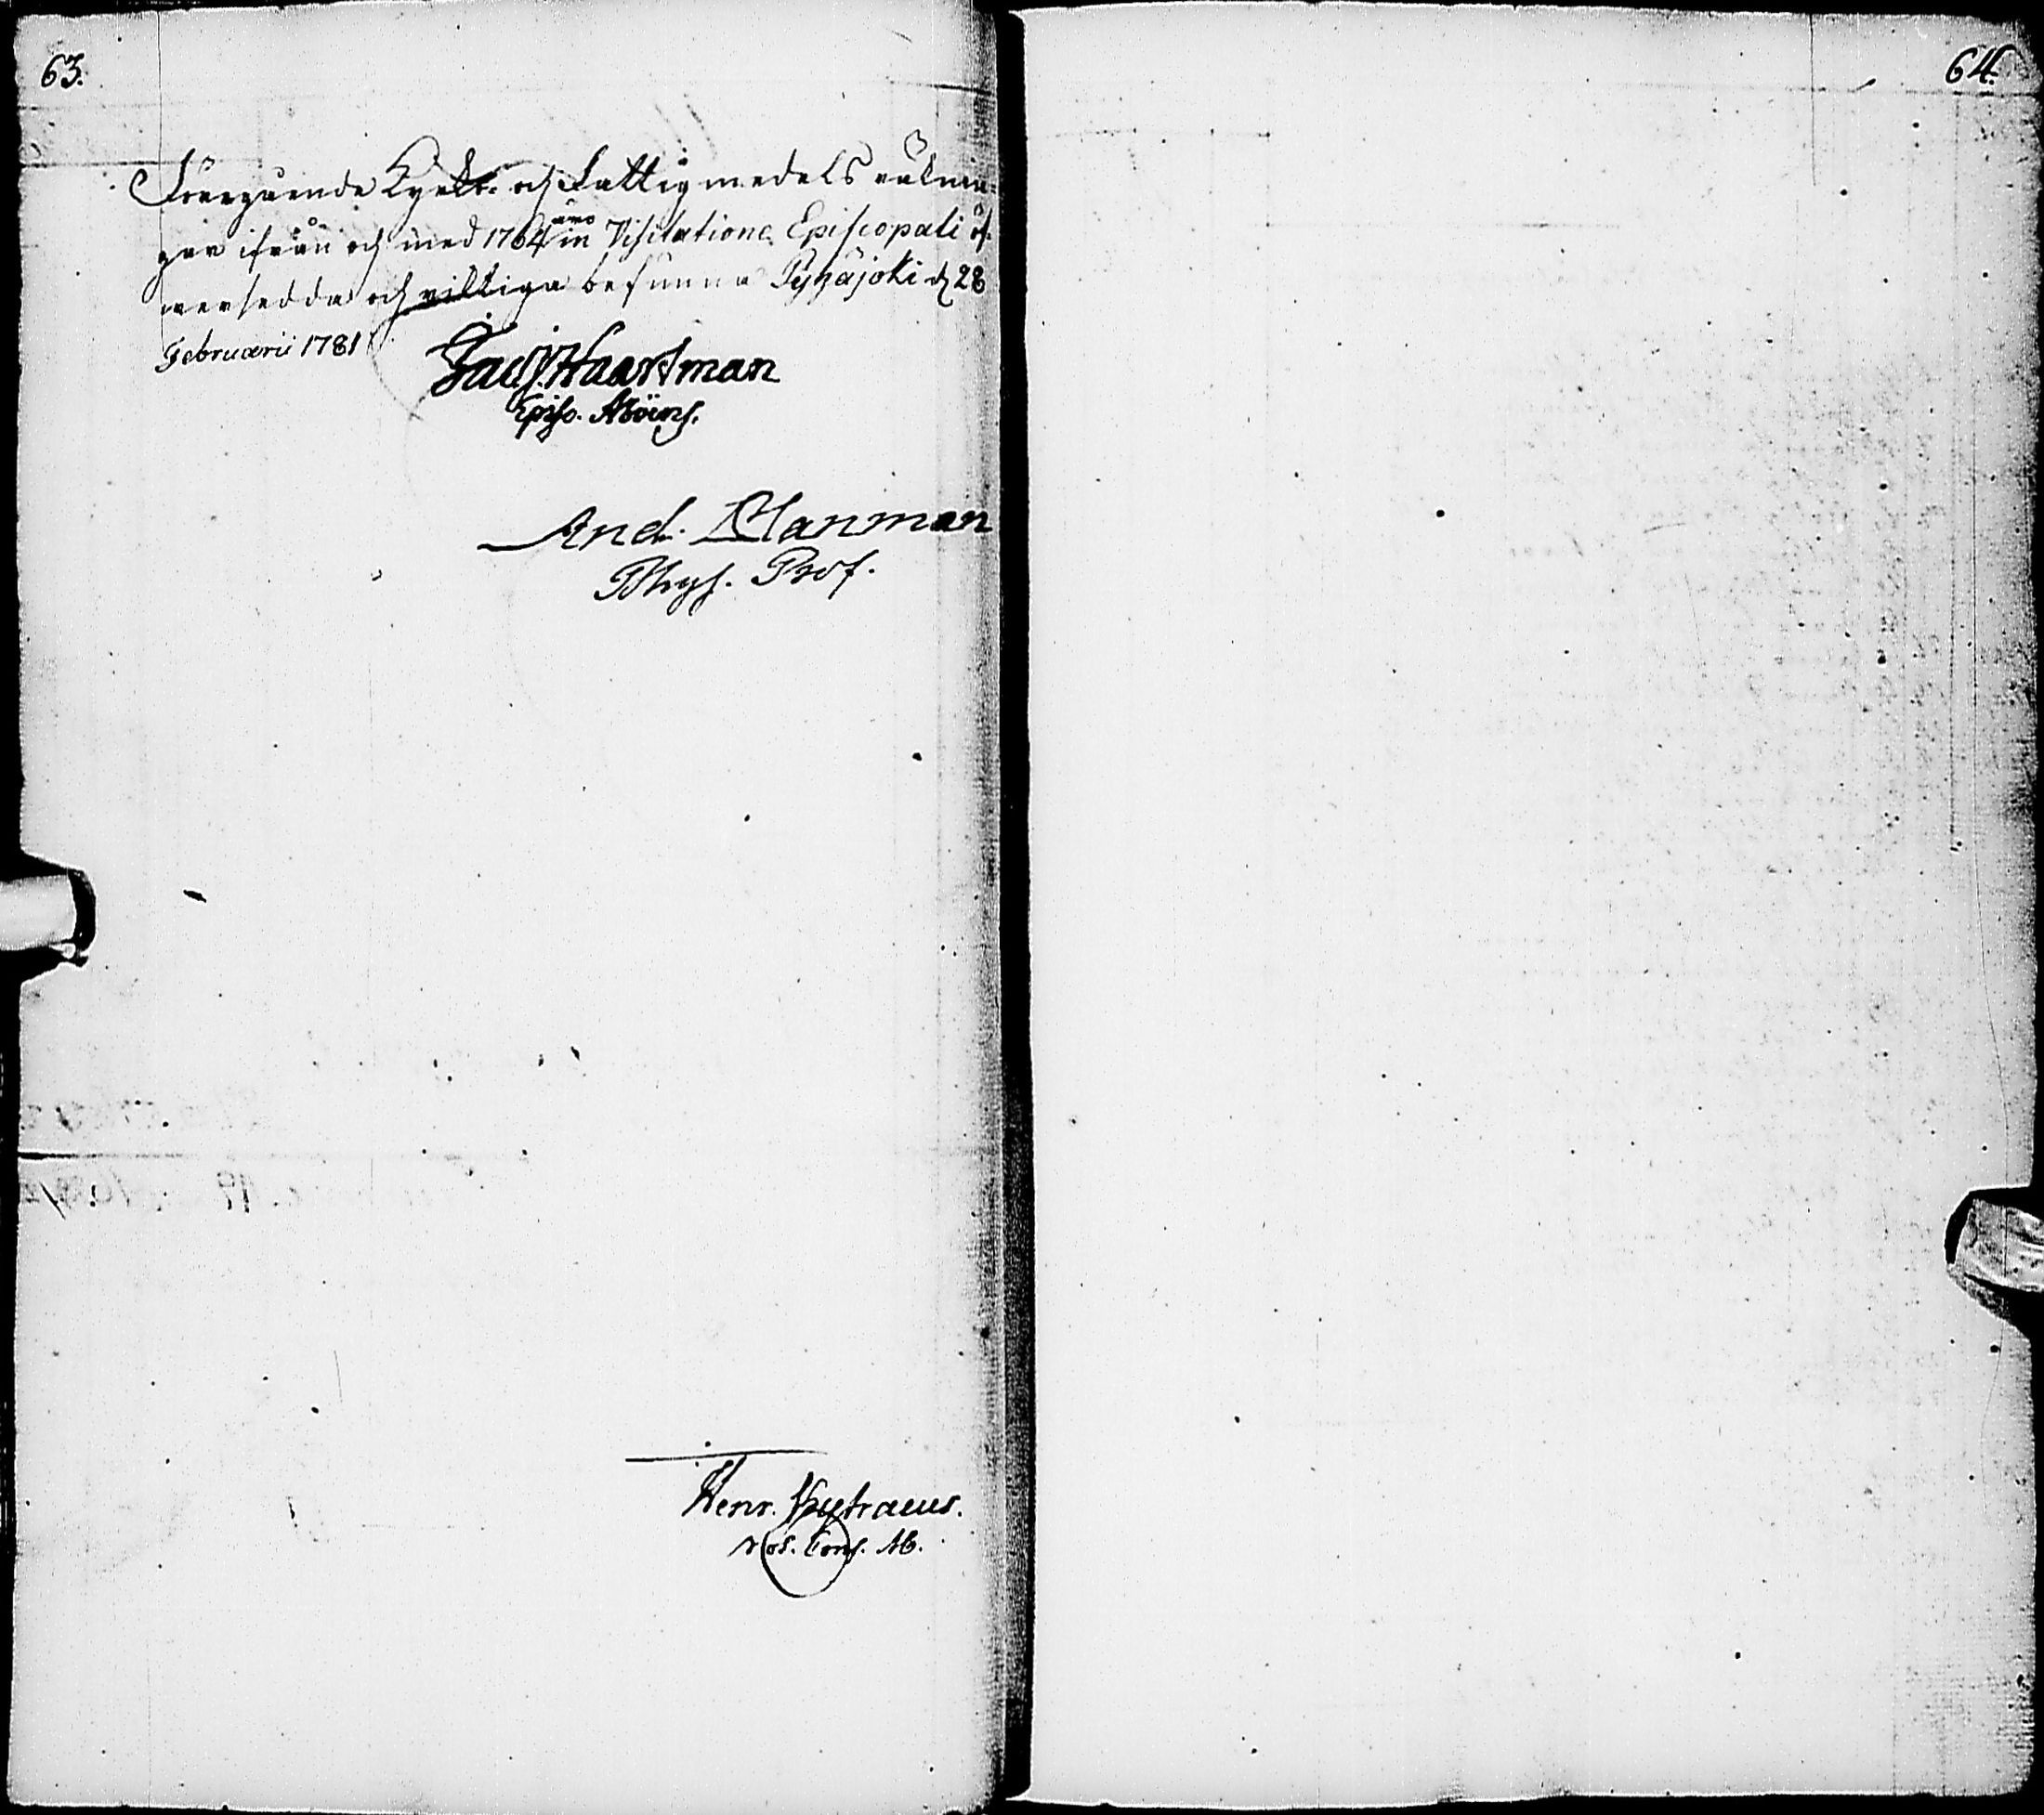 63.
Föregående Kyrko- och Fattigmedels räknin-
gar ifrån och med 1764 in Visitatione Episcopali öf-
wersedda och riktiga befunna Pyhäjoki d 28
Februarii 1781
Jac. Haartman
Episc. Aboëns.
And. Planman
Phys. Prof.
Henr. 
Not. Cons. Ab.
64.